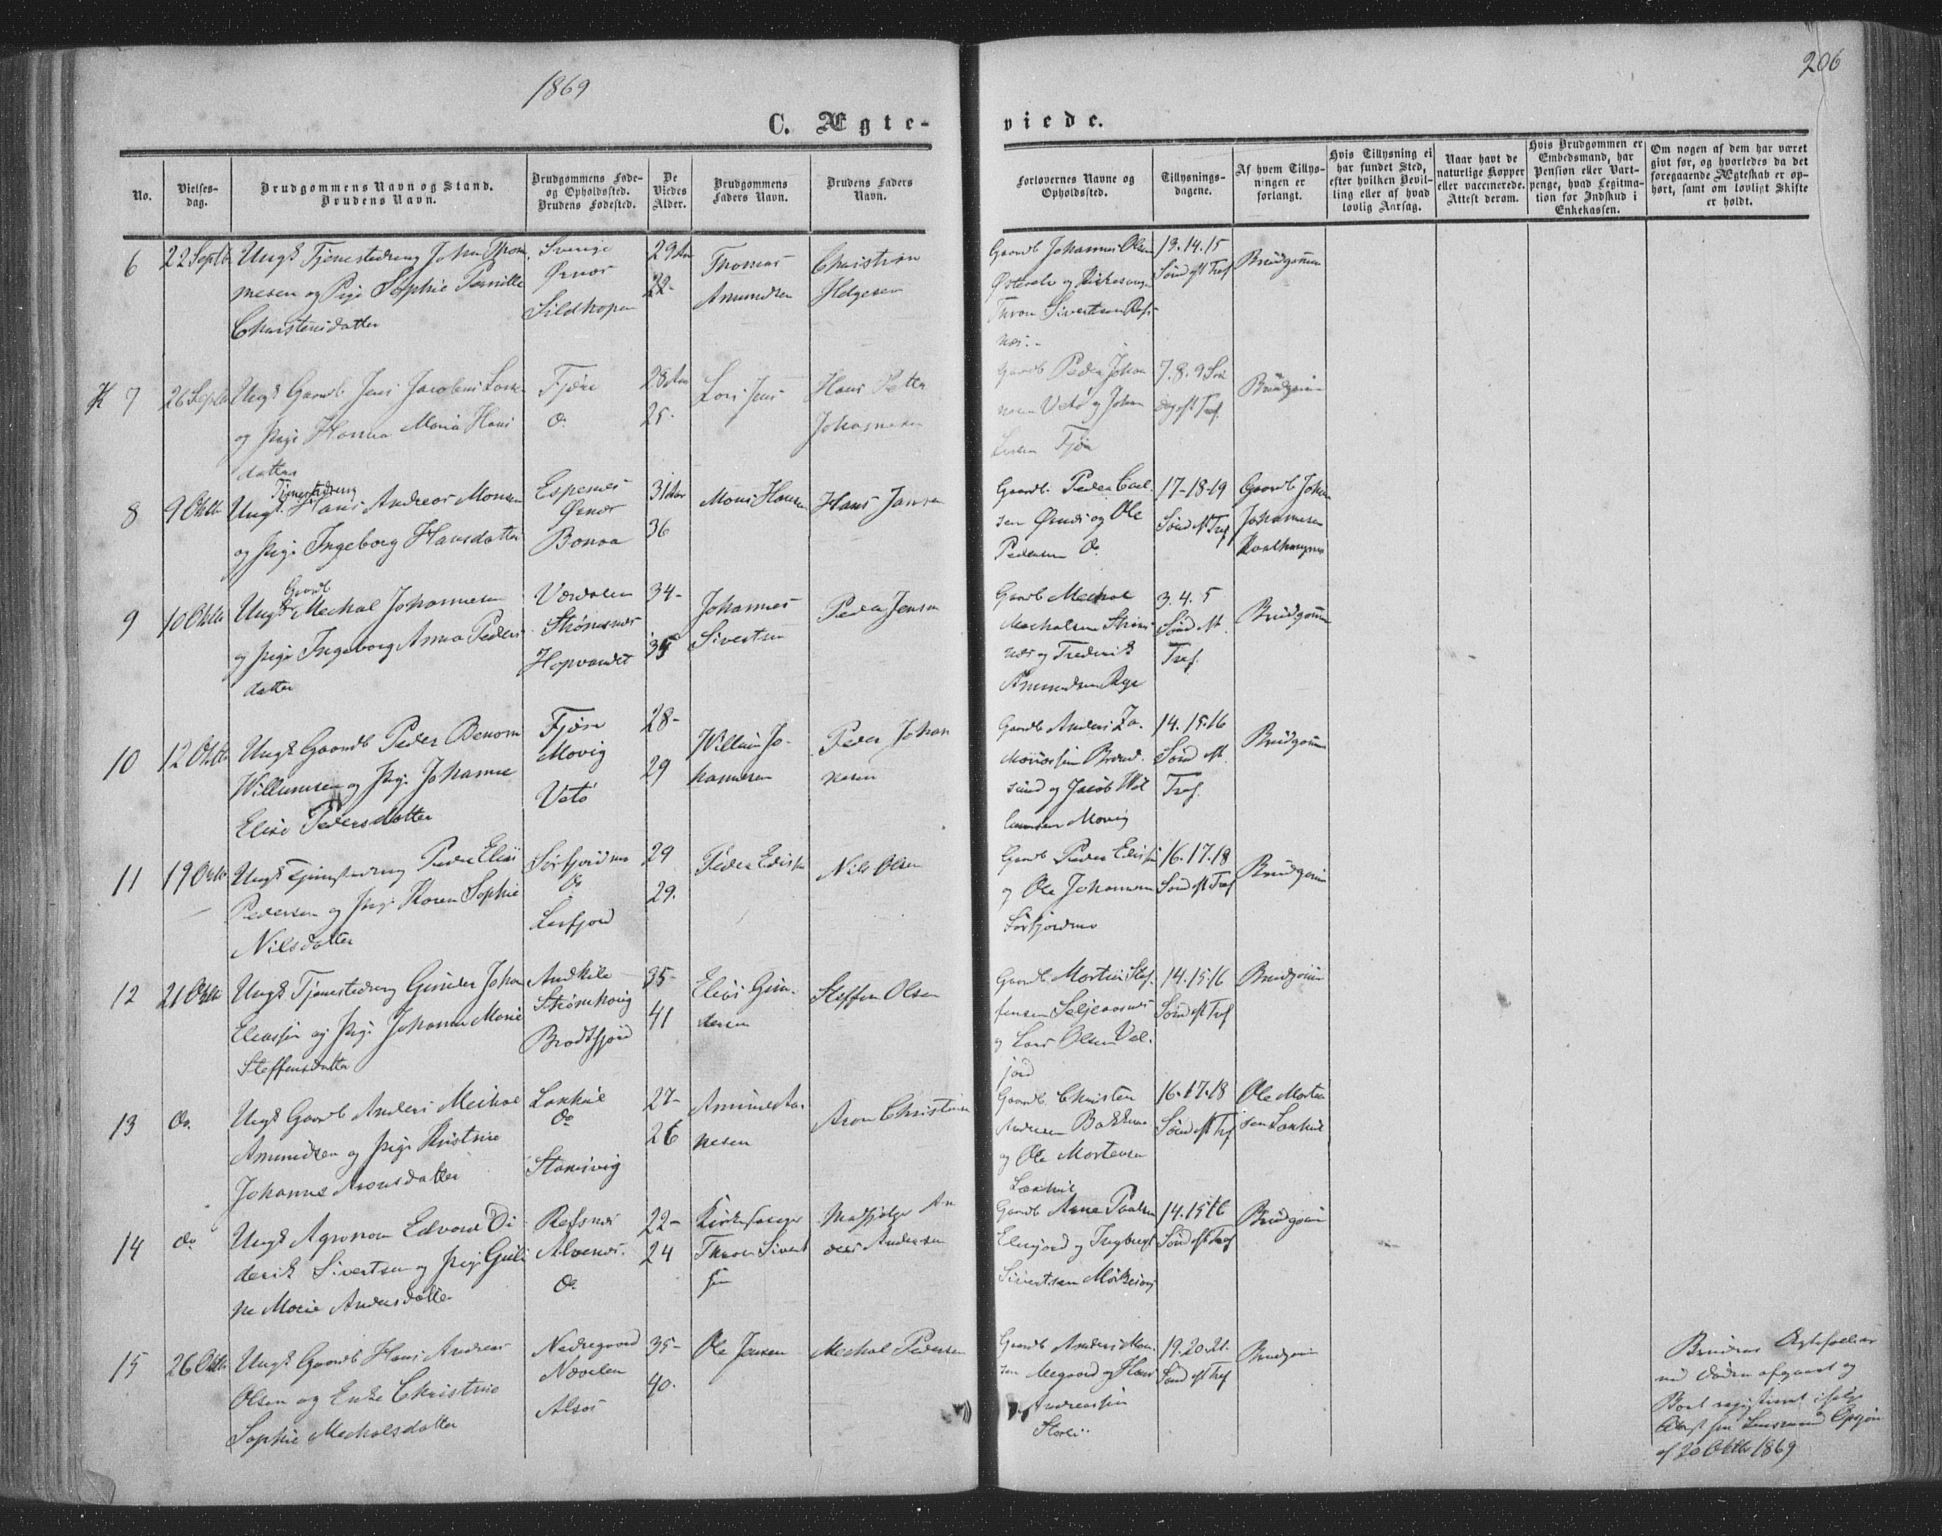 1869
206
C. Ægte-
viede.
No.
Vielses-
dag.
Brudgommens Navn og Stand.
Brudens Navn.
Brudgommens Føde-
og Opholdssted.
Brudens Fødested.
De
Viedes
Alder.
Brudgommens
Faders Navn.
Brudens Faders
Navn.
Forlovernes Navne og
Opholdssted.
Tillysnings-
dagene.
Af hvem Tillys-
ningen er
forlangt.
Hvis Tillysning ei
har fundet Sted,
efter hvilken Bevil-
ling eller af hvad
lovlig Aarsag.
Naar havt de
naturlige Kopper
eller vaccinerede.
Attest derom.
Hvis Brudgommen er
Embedsmand, har
Pension eller Vart-
penge, hvad Legitima-
tion for Indskud i
Enkekassen.
Om nogen af dem har været
gift før, og hvorledes da det
foregaaende Ægteskab er op-
hørt, samt om lovligt Skifte
er holdt.
6
22 Septb
Ungk Tjenestedreng John Thom
mesen og Pige Sophie Pernille
Christensdatter
Sverige
Ørnes
Sildhopen
29 Aar
22-
Thomas
Amundsen
Christian
Helgesen
Gaardb Johannes Olsen
og Kirkesanger
Thron Sivertsen Refs
nes.-
13. 14. 15
Sønd eft Tref
Brudgommen
K 7
26 Septb
Ungk Gaardb Jens Jacobus Lars
og Pige Hanna Maria Hans
datter
Fjære
do.
28 Aar
25.
Lars Jens
Hans Petter
Johannesen
Gaardb Peder Johan
nesen Vetø og Johan
Larsen Fjære
7. 8. 9 Søn
dag eft Tref.
Brudgom
8
9 Oktb
Tjenestedreng
Ungk. Hans Andreas Monsen
og Pige Ingeborg Hansdatter
Espenes
Ørnes
Bonaa
31 Aar
36
Mons Hansen
Hans Jansen
Gaardb. Peder Carl-
sen Ørnes og Ole
Pedersen do.
17-18-19
Sønd eft Tref
Gaardb Johan
Johannesen
9
10 Oktb
Gaardb
Ungk Mechal Johannesen
og Pige Ingeborg Anna Peders
datter
Værdalen
Strømsnes
Hopvandet
34-
35
Johannes
Sivertsen
Peder Jensen
Gaardb Mechal
Mechalsen Strøms
nes og Frederik
Amundsen Røge
3. 4. 5
Sønd eft.
Tref.
Brudgommen
10
12 Oktb
Ungk Gaardb Peder Benoni
Willumsen og Pige Johanne
Elise Pedersdatter
Fjære
Movig
Vetø
28-
29
Willum Jo-
hannesen
Peder Johan
nesen
Gaardb Anders Za-
kariassen Brend-
sund og Jacob Wil
lumsen Movig
14. 15. 16
Sønd eft.
Tref.
Brudgommen
11
19 Oktb
Ungk Tjenestedreng Peder Elias
Pedersen og Pige Karen Sophie
Nilsdatter
Sørfjordmo
do
Leirfjord
29
29.
Peder Ediassen
Nils Olsen
Gaardb Peder Ediassen
og Ole Johannesen
Sørfjordmo
16. 17. 18
Sønd eft Tref
Brudgom
12
21 Oktb
Ungk Tjenestedreng Gunder Johan
Eliassen og Pige Johanna Marie
Steffensdatter
Andkile
Strømhaug
Brodtfjord
35-
41
Elias Gun-
dersen
Steffen Olsen
Gaardb Morten Stef-
fensen Seljeaasnes
og Lars Olsen Val-
jord
14. 15. 16
Sønd eft Tref
Brudgom
13
do.
Ungk Gaardb Anders Meikal
Amundsen og Pige Kristine
Johanne Aronsdatter
Laxhul
do
Stamsvig
27-
26
Amund An-
nesen
Aron Christensen
Gaardb. Christen
Andersen Bakken
og Ole Mortensen
Laxhul
16. 17. 18
Sønd eft Tref
Ole Morten
sen Laxhul
14
do
Ungk Agronom Edvard Di-
derik Sivertsen og Pige Guli
ne Marie Andersdatter
Refsnes
Alvenes.
do
22-
24
Kirkesanger
Thron Sivert
sen
An
ders Andersen
Gaardb Arne Paulsen
Elvejord og Ingbrigt
Sivertsen Mørkesvig
14. 15. 16
Sønd eft Tref
Brudgom
15
26 Oktb
Ungk Gaardb Hans Andreas
Olsen og Enke Christine
Sophie Mechalsdatter
Nedregaard
Nævelen
Alsos
35-
40.
Ole Jensen
Mechal Pedersen
Gaardb Anders Mon-
sen Megaard og Hans
Andreassen
Storli
19. 20. 21.
Sønd eft Tref
Brudgom
Brudens Ægtefælle er
ved Døden afgaaet og
Boet registreret ifølge
Attest fra Lensmand Opsjøn
af 20 Oktb 1869